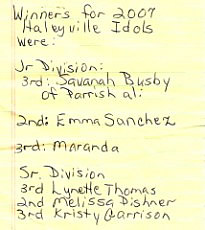 Winners for 2007
Haleyville Idols
Were:
Jr Division:
3rd: Savanah Busby
of Parrish al:
2nd: Emma Sanchez
3rd: Maranda
Sr. Division
3rd Lynette Thomas
2nd Melissa Dishner
3rd Kristy Garrison